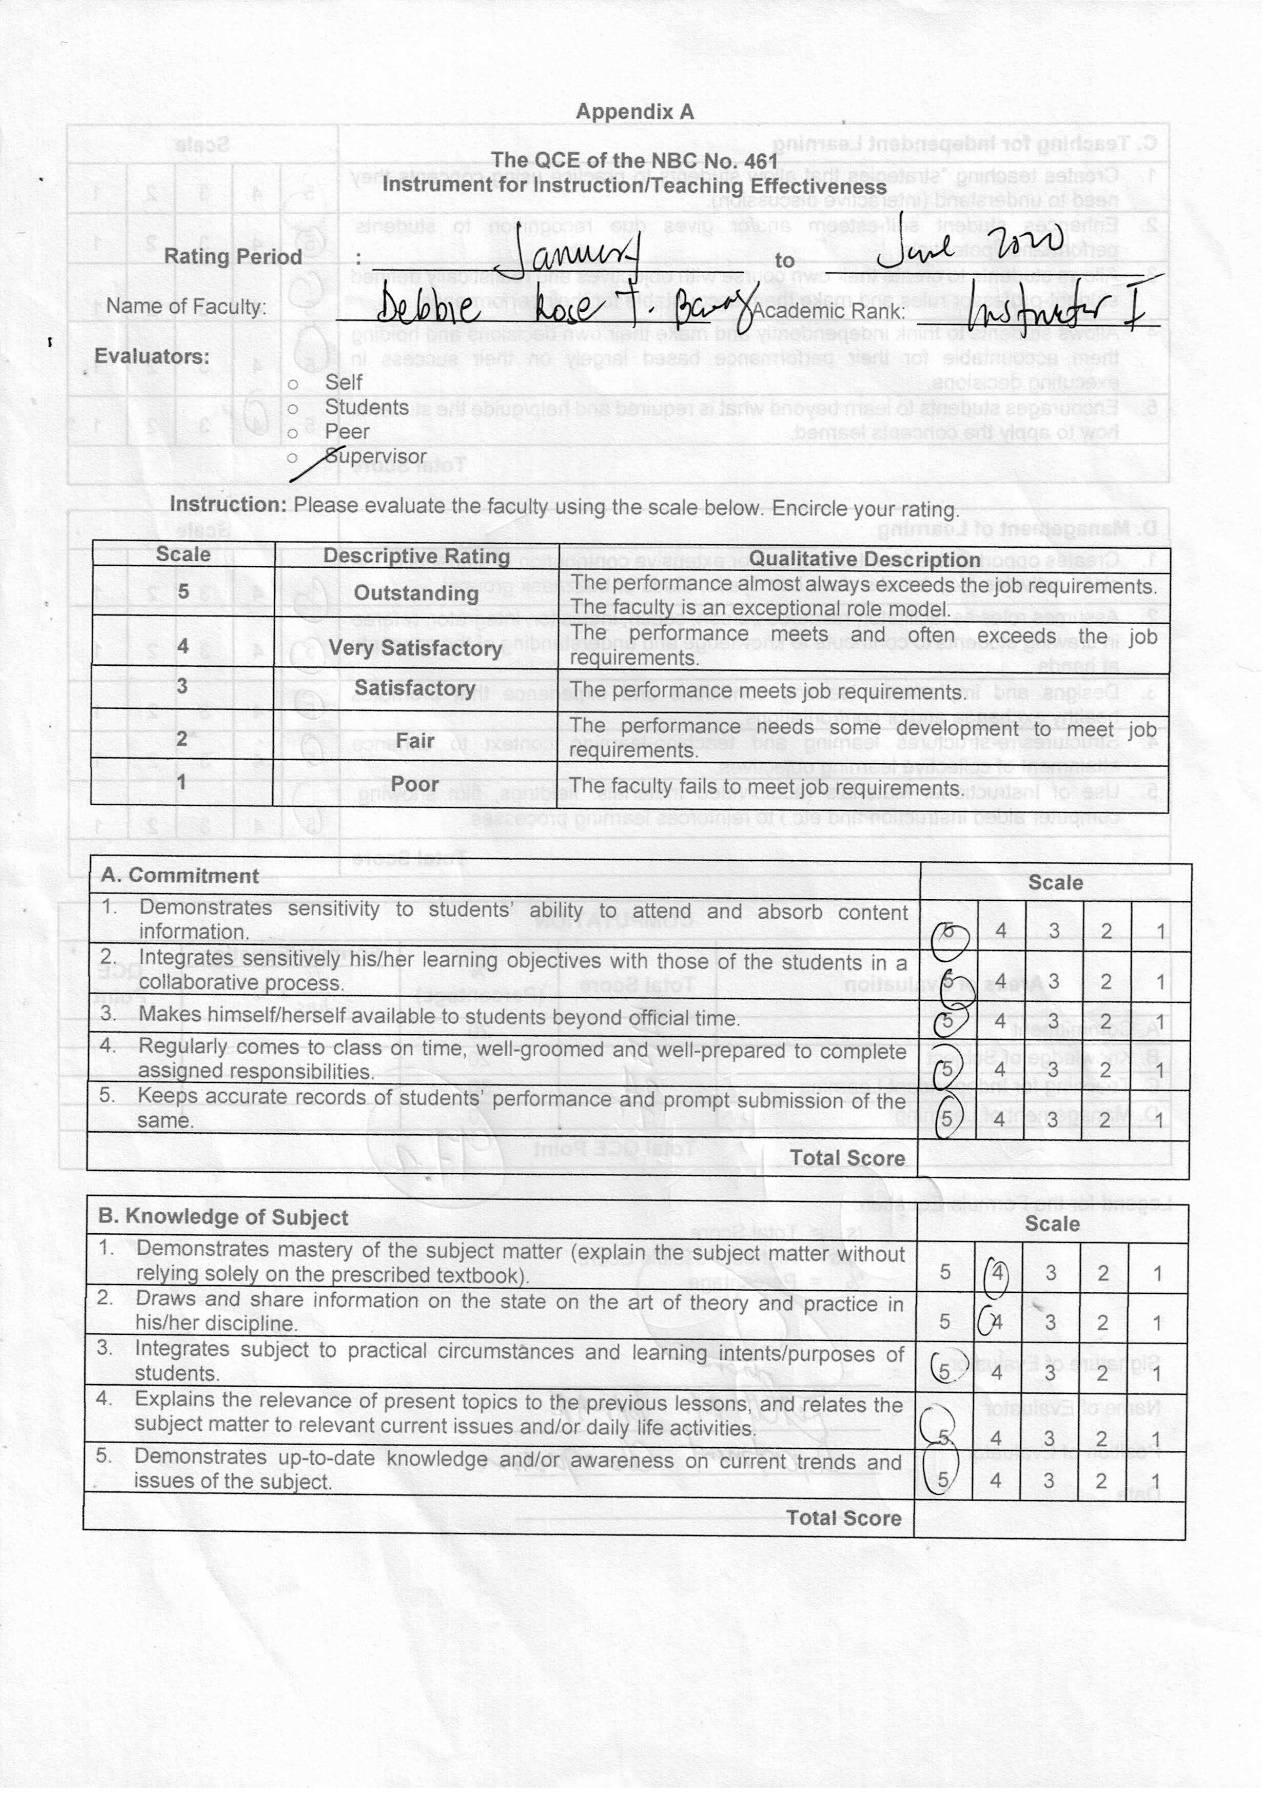 Appendix A
The QCE of the NBC No. 461
Instrument for Instruction/Teaching Effectiveness
Rating Period : January to June 2020
Name of Faculty: Debbie Rose T. Academic Rank: Instructor I
Evaluators:
○ Self
○ Students
○ Peer
○ Supervisor
Instruction: Please evaluate the faculty using the scale below. Encircle your rating.
Scale Descriptive Rating Qualitative Description
5 Outstanding The performance almost always exceeds the job requirements.
The faculty is an exceptional role model.
4 Very Satisfactory The performance meets and often exceeds the job
requirements.
3 Satisfactory The performance meets job requirements.
2 Fair The performance needs some development to meet job
requirements.
1 Poor The faculty fails to meet job requirements.
A. Commitment Scale
1. Demonstrates sensitivity to students' ability to attend and absorb content
information. 5 4 3 2 1
2. Integrates sensitively his/her learning objectives with those of the students in a
collaborative process. 5 4 3 2 1
3. Makes himself/herself available to students beyond official time. 5 4 3 2 1
4. Regularly comes to class on time, well-groomed and well-prepared to complete
assigned responsibilities. 5 4 3 2 1
5. Keeps accurate records of students' performance and prompt submission of the
same. 5 4 3 2 1
Total Score
B. Knowledge of Subject Scale
1. Demonstrates mastery of the subject matter (explain the subject matter without
relying solely on the prescribed textbook). 5 4 3 2 1
2. Draws and share information on the state on the art of theory and practice in
his/her discipline. 5 4 3 2 1
3. Integrates subject to practical circumstances and learning intents/purposes of
students. 5 4 3 2 1
4. Explains the relevance of present topics to the previous lessons, and relates the
subject matter to relevant current issues and/or daily life activities. 5 4 3 2 1
5. Demonstrates up-to-date knowledge and/or awareness on current trends and
issues of the subject. 5 4 3 2 1
Total Score